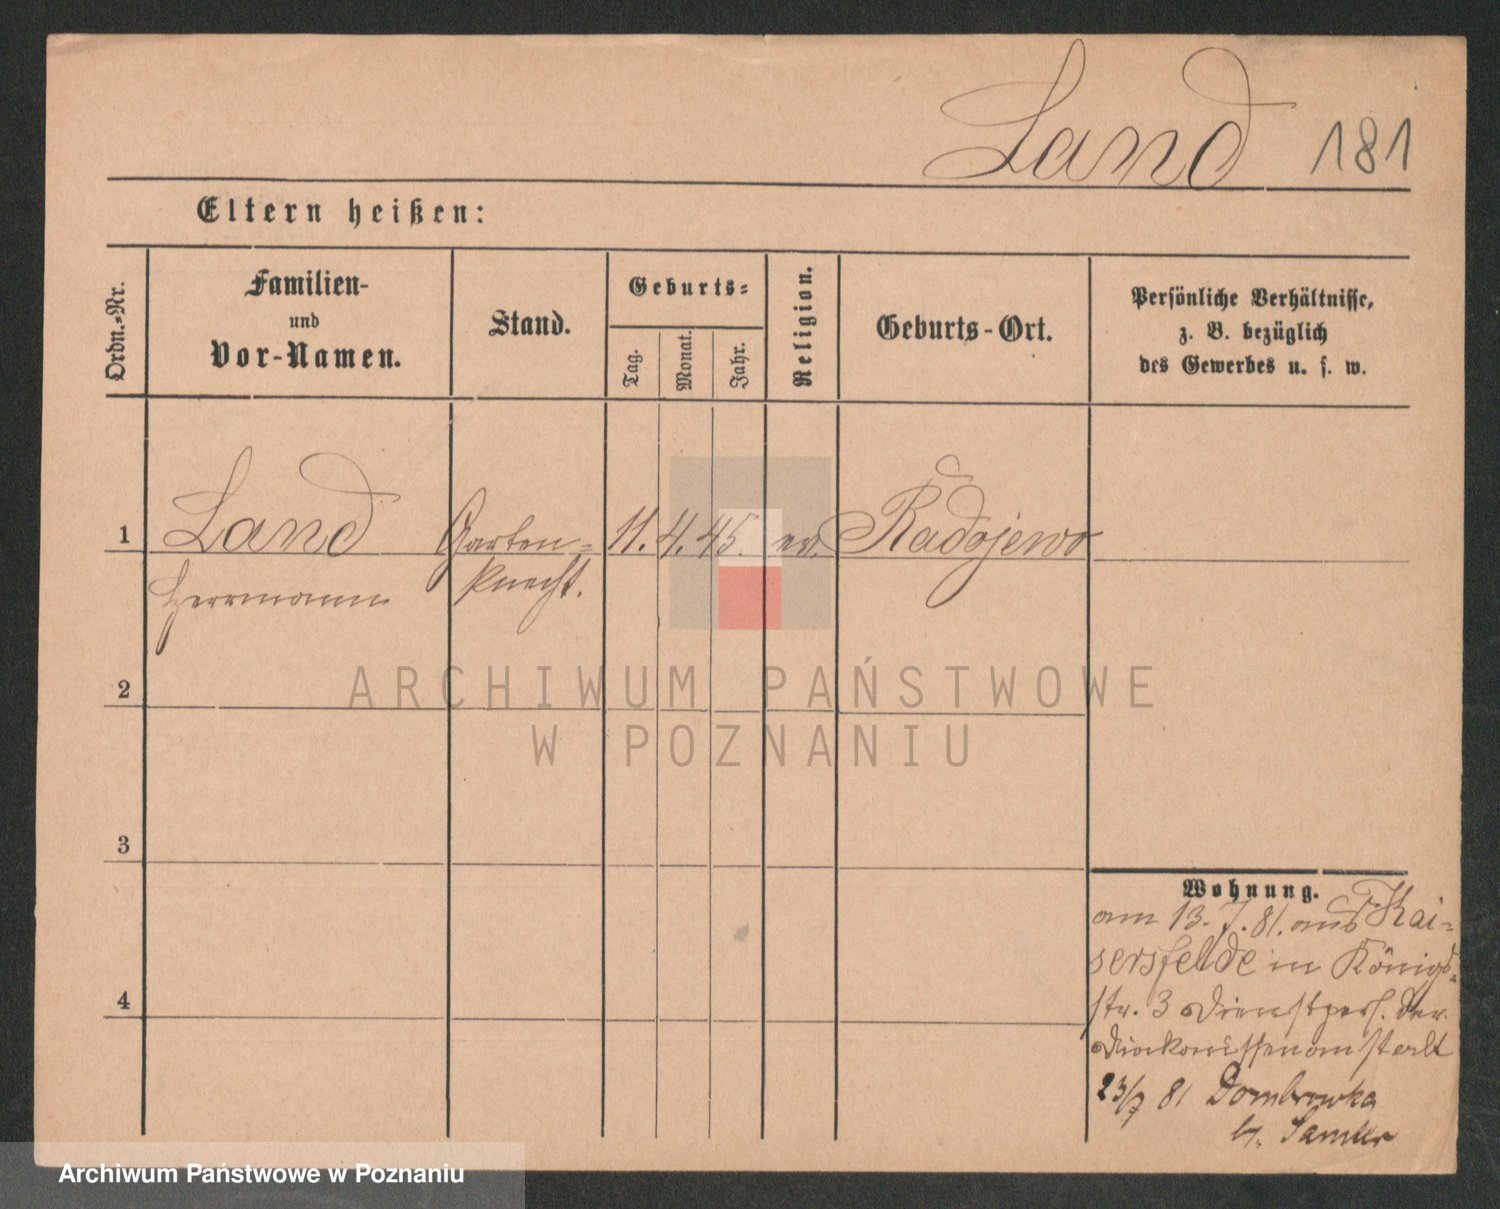 Land 181
Eltern heißen:
Ordn.-Nr.
Familien-
und
Vor-Namen.
Stand.
Geburts-
Tag.
Monat.
Jahr.
Religion.
Geburts-Ort.
Persönliche Verhältnisse,
z. B. bezüglich
des Gewerbes u. s. w.
1 Land Garten- 11. 4. 45. ev. Radojewo
Herrmann knecht.
2
3
4
Wohnung.
am 13. 7. 81. aus Kai-
sersfelde in Königs-
str. 3 Dienstpers. der
Diakonissenanstalt
23/7 81 Dombrowka
b. Samter
ARCHIWUM PAŃSTWOWE
W POZNANIU
Archiwum Państwowe w Poznaniu